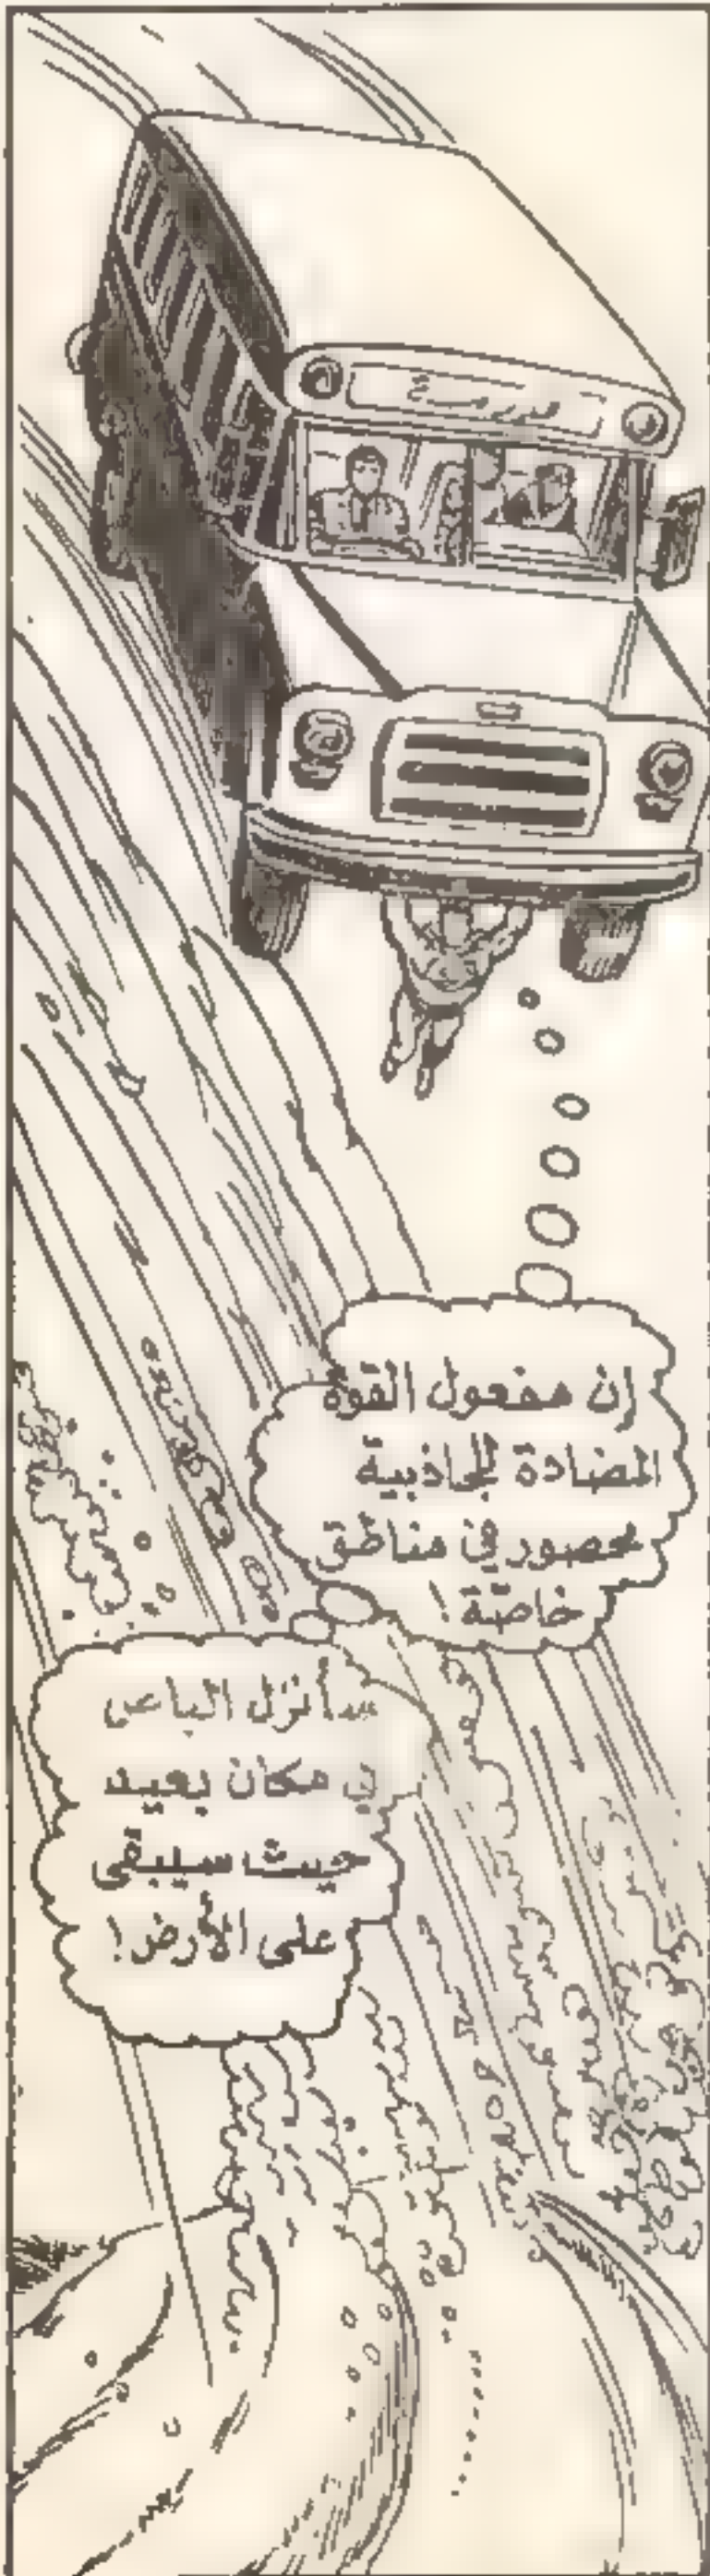 مدرسة
إن مفعول القوة
المضادة للجاذبية
محصور في مناطق
خاصّة!
سأنزل الباص
في مكان بعيد
حيث سيبقى
على الأرض!